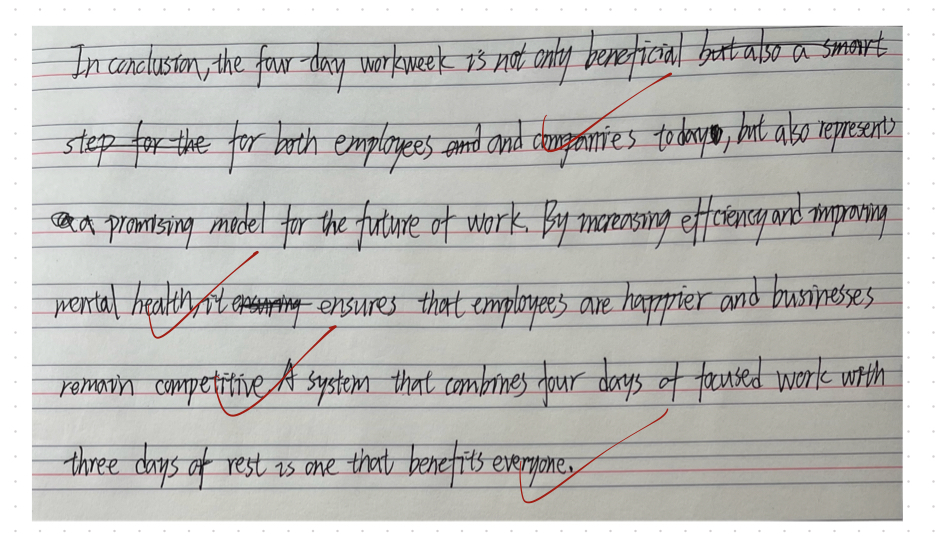 In conclusion, the four-day workweek is not only beneficial but also a smart
step for the for both employees and and companies today, but also represents
a promising model for the future of work. By increasing efficiency and improving
mental health, it ensuring ensures that employees are happier and businesses
remain competitive. A system that combines four days of focused work with
three days of rest is one that benefits everyone.